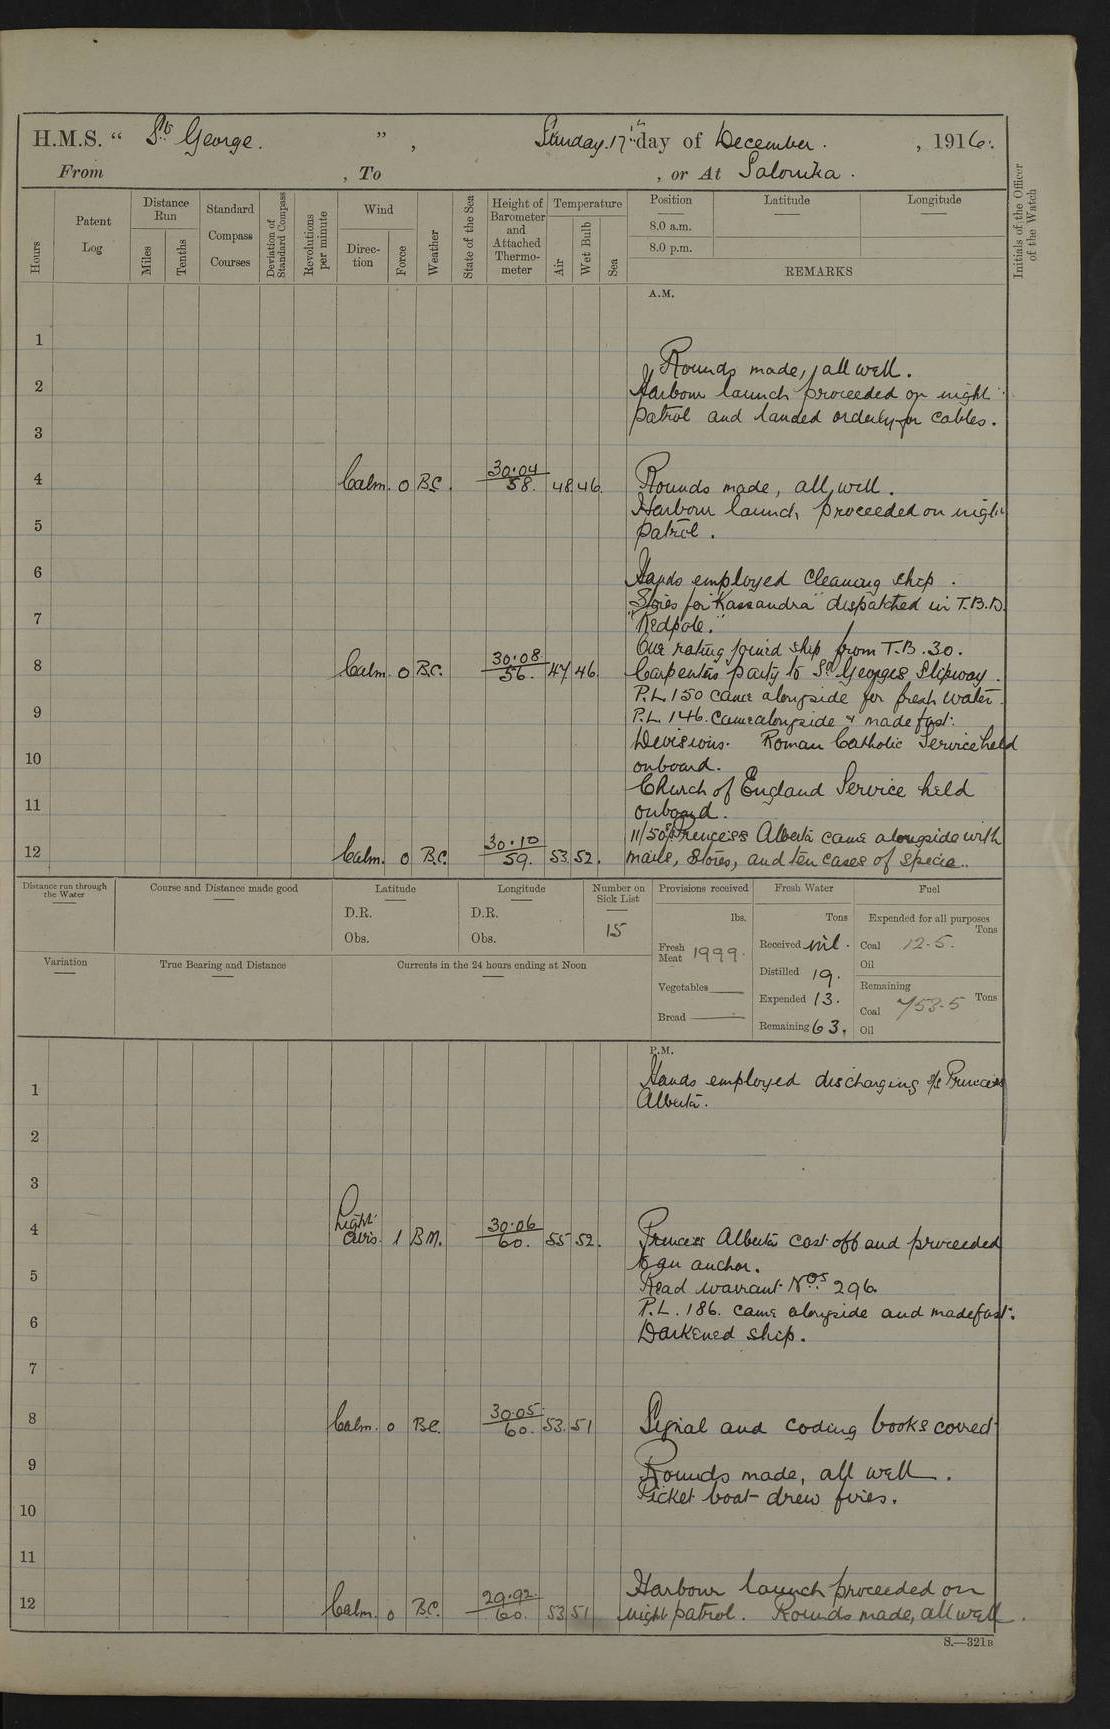 H.M.S. " St George. ", Sunday 17th day of December. , 1916.
From , To , or At Salonika.
Hours
Patent Log
Distance Run
Miles
Tenths
Standard Compass Courses
Deviation of Standard Compass
Revolutions per minute
Wind
Direction
Force
Weather
State of the Sea
Height of Barometer and Attached Thermometer
Temperature
Air
Wet Bulb
Sea
Position Latitude Longitude
8.0 a.m.
8.0 p.m.
REMARKS
Initials of the Officer of the Watch
A.M.
1
Rounds made, all well.
2 Harbour launch proceeded on night
patrol and landed orderly for cables.
3
4 Calm. 0 B.C. 30.04 58. 48. 46. Rounds made, all well.
Harbour launch proceeded on night
5 patrol.
6 Hands employed cleaning ship.
Stores for "Kassandra" dispatched in T.B.D.
7 "Redpole."
One rating joined ship from T.B. 30.
8 Calm. 0 B.C. 30.08 56. 47 46. Carpenters party to St Georges Slipway.
P.L. 150 came alongside for fresh water.
9 P.L. 146. came alongside & made fast.
Divisions. Roman Catholic Service held
10 onboard.
Church of England Service held
11 onboard.
11/50 Princess Alberta came alongside with
12 Calm. 0 B.C. 30.10 59. 53. 52. mails, stores, and ten cases of specie.
Distance run through the Water
Course and Distance made good
Latitude
D.R.
Obs.
Longitude
D.R.
Obs.
Number on Sick List
15
Provisions received
lbs.
Fresh Meat 1999.
Vegetables
Bread
Fresh Water
Tons
Received nil.
Distilled 19.
Expended 13.
Remaining 63.
Fuel
Expended for all purposes
Tons
Coal 12.5.
Oil
Remaining
Coal 753.5 Tons
Oil
Variation
True Bearing and Distance
Currents in the 24 hours ending at Noon
P.M.
Hands employed discharging s/s Princess
1 Alberta.
2
3
4 Light airs. 1 B.M. 30.06 60. 55 52. Princess Alberta cast off and proceeded
to an anchor.
5 Read warrant Nos 296.
P.L. 186. came alongside and made fast.
6 Darkened ship.
7
8 Calm. 0 B.C. 30.05 60. 53. 51 Signal and coding books correct
9 Rounds made, all well.
Picket boat drew fires.
10
11
Harbour launch proceeded on
12 Calm. 0 B.C. 29.92. 60. 53 51 night patrol. Rounds made, all well.
S.—321B